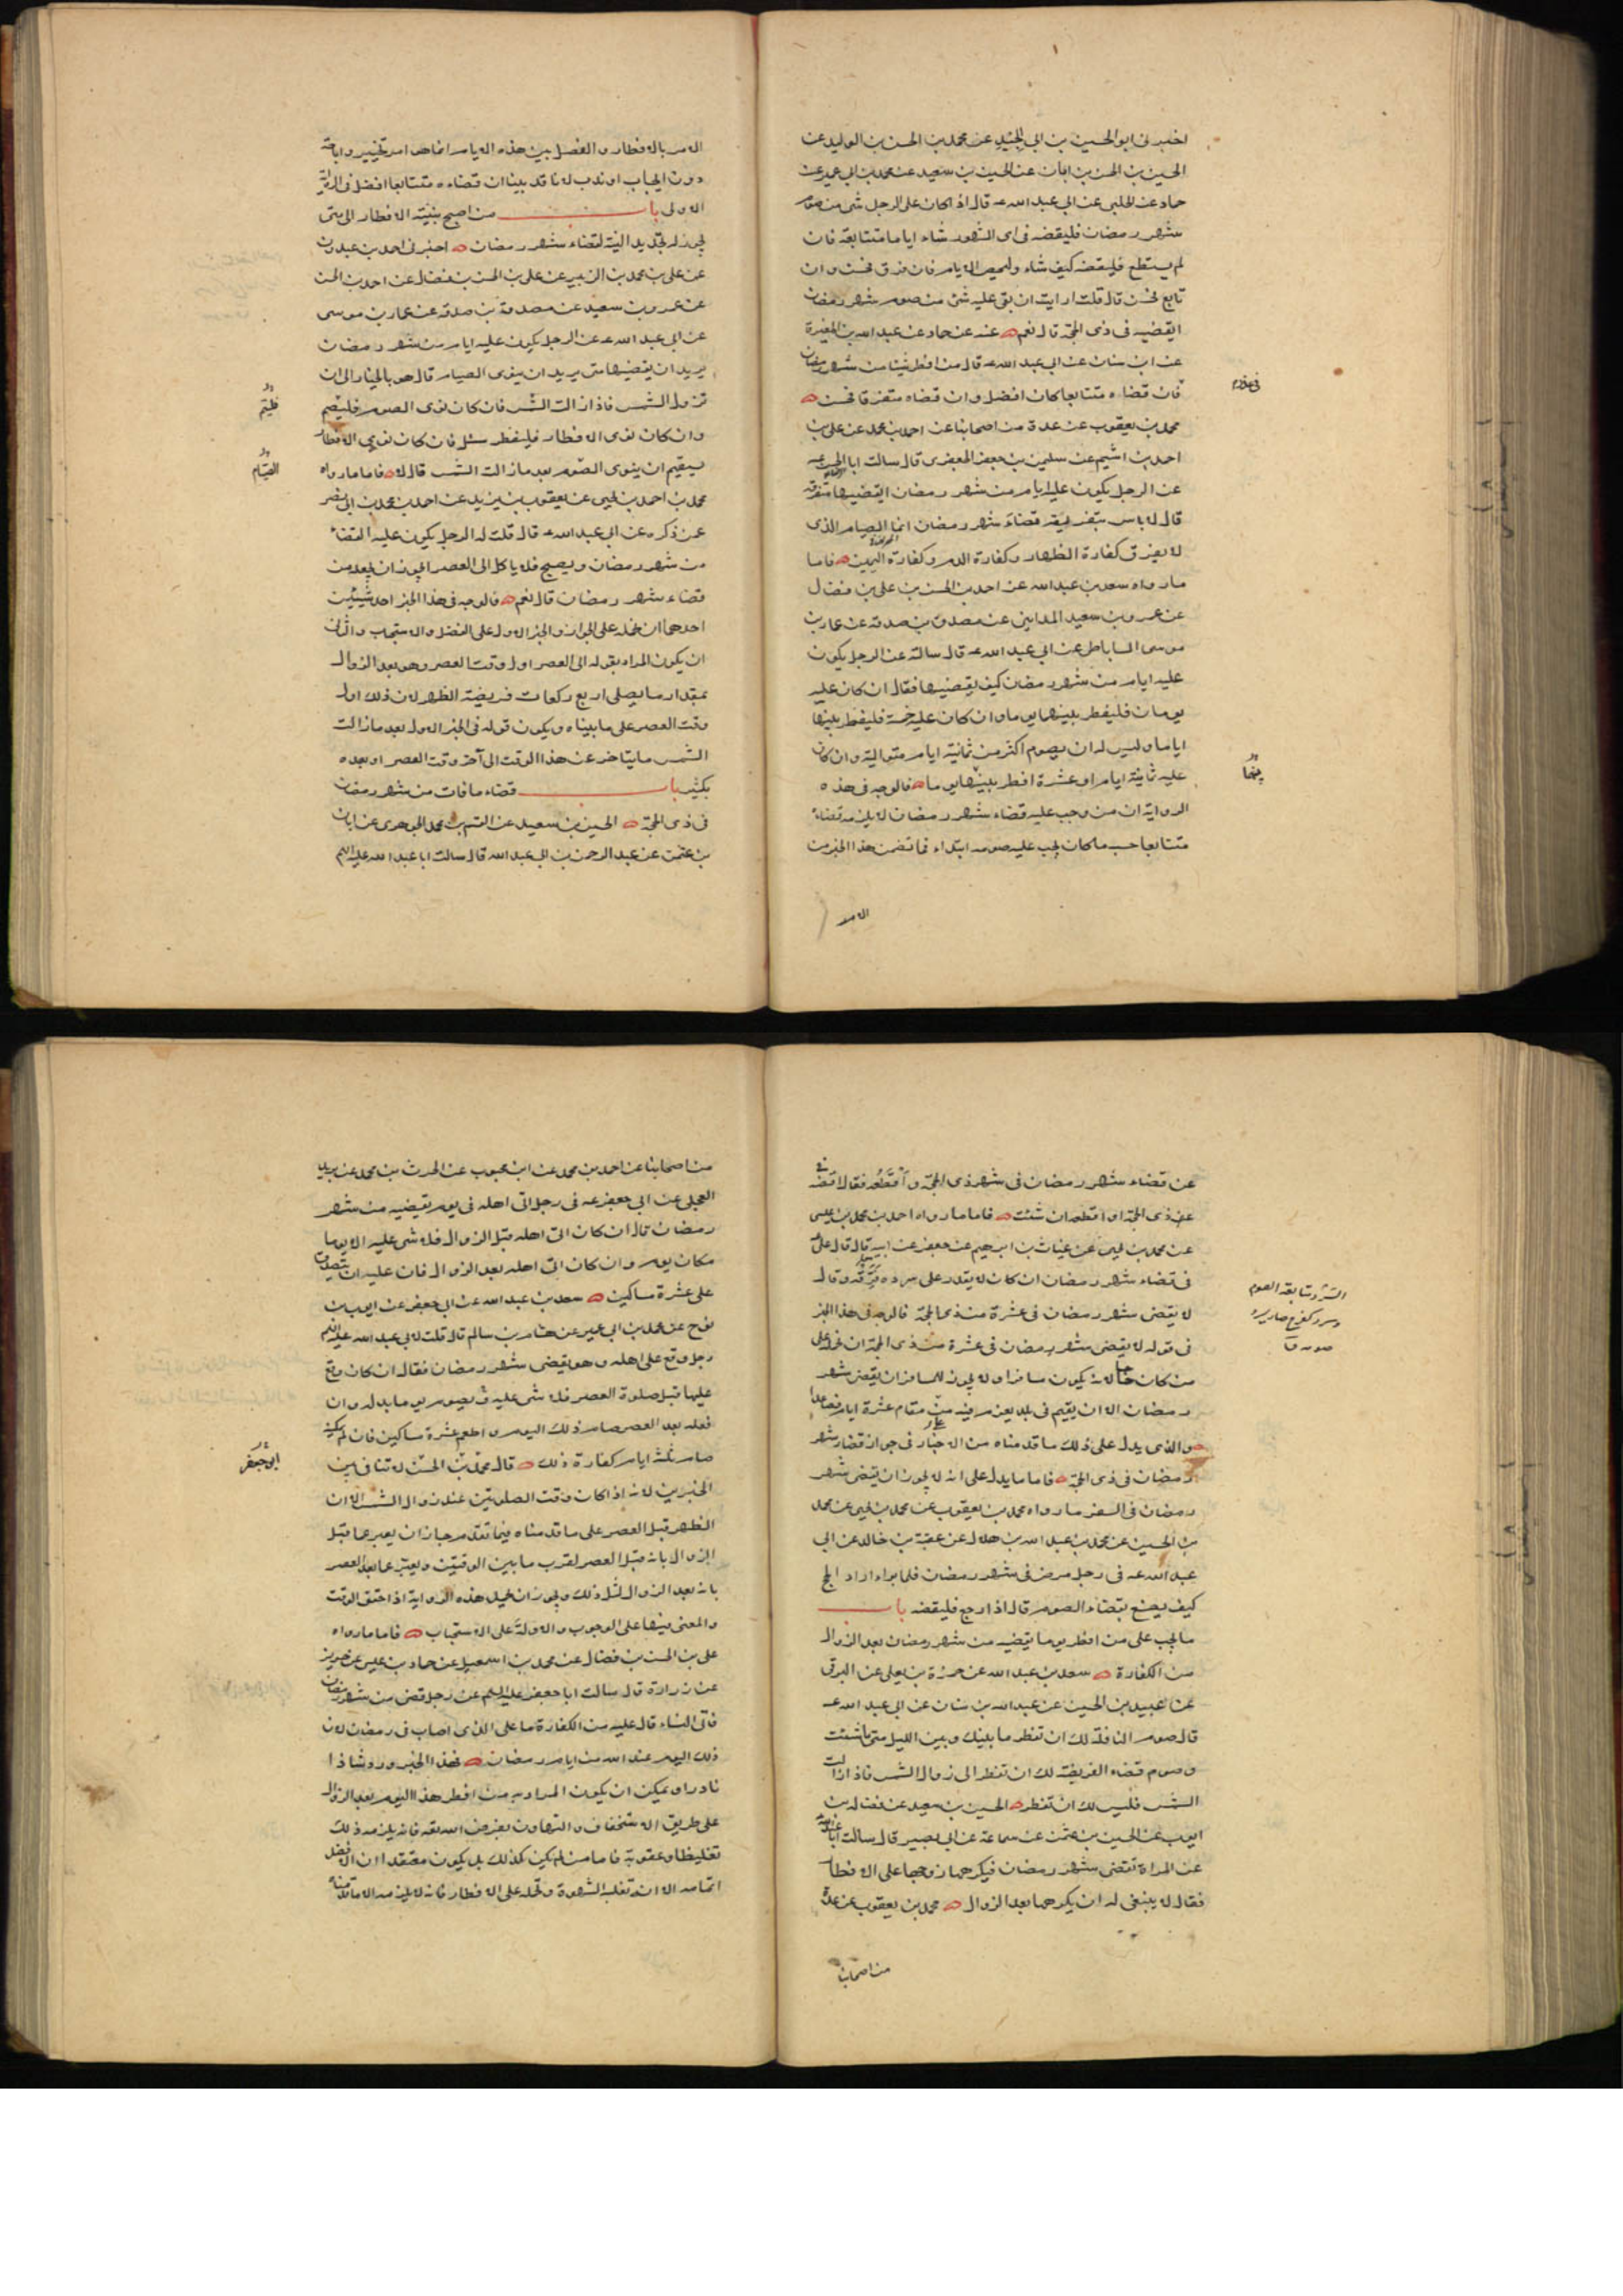 اخبرنى ابو الحسين بن ابى الجيد عن محمد بن الحسن بن الوليد عن
الحسين بن الحسن بن ابان عن الحسين بن سعيد عن محمد بن ابى عمير عن
حماد عن الحلبى عن ابى عبد الله ع قال اذا كان على الرجل شى من صوم
شهر رمضان فليقضه فى اى الشهور شاء اياما متتابعة فان
لم يستطع فليقضه كيف شاء وليحص الايام فان فرق فحسن وان
تابع فحسن قال قلت ارايت ان بقى عليه شئ من صوم شهر رمضان
ايقضيه فى ذى الحجة قال نعم عنه عن حماد عن عبد الله بن المغيرة
عن ابن سنان عن ابى عبد الله ع قال من افطر شيئا من شهر رمضان
فى عذر
فان قضاه متتابعا كان افضل وان قضاه متفرقا فحسن
محمد بن يعقوب عن عدة من اصحابنا عن احمد بن محمد عن على بن
احمد بن اشيم عن سليمن بن جعفر الجعفرى قال سالت ابا الحسن ع
عن الرجل يكون عليه ايام من شهر رمضان ايقضيها متفرقة
قال لا باس بتفرقة قضاء شهر رمضان انما الصيام الذى
لا يفرق كفارة الظهار وكفارة الدم وكفارة اليمين فاما
ما رواه سعد بن عبد الله عن احمد بن الحسن بن على بن فضال
عن عمرو بن سعيد المداينى عن مصدق بن صدقة عن عمار بن
موسى الساباطى عن ابى عبد الله ع قال سالته عن الرجل يكون
عليه ايام من شهر رمضان كيف يقضيها فقال ان كان عليه
يومان فليفطر بينهما يوما وان كان عليه خمسة فليفطر بينها
اياما وليس له ان يصوم اكثر من ثمانية ايام متوالية وان كان
بينهما
عليه ثمانية ايام او عشرة افطر بينها يوما فالوجه فى هذه
الرواية ان من وجب عليه قضاء شهر رمضان لا يلزمه قضاء
متتابعا حسب ما كان يجب عليه صومه ابتداء فما تضمن هذا الخبر من
الامر
الامر بالافطار والفصل بين هذه الايام انما هو امر تخيير واباحة
دون ايجاب او ندب لانا قد بينا ان قضاءه متتابعا افضل فى الرواية
الاولى باب من اصبح بنية الافطار الى متى
يجوز له تجديد النية لقضاء شهر رمضان اخبرنى احمد بن عبدون
عن على بن محمد بن الزبير عن على بن الحسن بن فضال عن احمد بن الحسن
عن عمرو بن سعيد عن مصدق بن صدقة عن عمار بن موسى
عن ابى عبد الله ع عن الرجل يكون عليه ايام من شهر رمضان
يريد ان يقضيها متى يريد ان ينوى الصيام قال هو بالخيار الى ان
تزول الشمس فاذا زالت الشمس فان كان نوى الصوم فليصم
فليتم
وان كان نوى الافطار فليفطر سئل فان كان نوى الافطار
يستقيم ان ينوى الصوم بعد ما زالت الشمس قال لا فاما ما رواه
الصيام
محمد بن احمد بن يحيى عن يعقوب بن يزيد عن احمد بن محمد بن ابى نصر
عمن ذكره عن ابى عبد الله ع قال قلت له الرجل يكون عليه القضاء
من شهر رمضان ويصبح فلا ياكل الى العصر ايجوز ان يجعله من
قضاء شهر رمضان قال نعم فالوجه فى هذا الخبر احد شيئين
احدهما ان نحمله على الجواز والخبر الاول على الفضل والاستحباب والثانى
ان يكون المراد بقوله الى العصر اول وقت العصر وهو بعد الزوال
بمقدار ما يصلى اربع ركعات فريضة الظهر لان ذلك اول
وقت العصر على ما بيناه ويكون قوله فى الخبر الاول بعد ما زالت
الشمس ما يتاخر عن هذا الوقت الى آخر وقت العصر او بعده
بكثير باب قضاء ما فات من شهر رمضان
فى ذى الحجة الحسين بن سعيد عن القسم بن محمد الجوهرى عن ابان
بن عثمن عن عبد الرحمن بن ابى عبد الله قال سالت ابا عبد الله عليه السلم
عن قضاء شهر رمضان فى شهر ذى الحجة واقطعه فقال اقضه
فى ذى الحجة او اقطعه ان شئت فاما ما رواه احمد بن محمد بن عيسى
عن محمد بن يحيى عن غياث بن ابرهيم عن جعفر عن ابيه قال قال على
فى قضاء شهر رمضان ان كان لا يقدر على سرده فرقه وقال
السرد متابعة الصوم
وسرد كفرح صار يسرد
صومه ق
لا يقضى شهر رمضان فى عشرة من ذى الحجة فالوجه فى هذا الخبر
فى قوله لا يقضى شهر رمضان فى عشرة من ذى الحجة ان نحمله على
من كان حاجا لانه يكون مسافرا ولا يجوز للمسافر ان يقضى شهر
رمضان الا ان يقيم فى بلد يعزم فيه على مقام عشرة ايام فصاعدا
والذى يدل على ذلك ما قدمناه من الاخبار فى جواز قضاء شهر
رمضان فى ذى الحجة فاما ما يدل على انه لا يجوز ان يقضى شهر
رمضان فى السفر ما رواه محمد بن يعقوب عن محمد بن يحيى عن محمد
بن الحسين عن محمد بن عبد الله بن هلال عن عقبة بن خالد عن ابى
عبد الله ع فى رجل مرض فى شهر رمضان فلما برا اراد الحج
كيف يصنع بقضاء الصوم قال اذا رجع فليقضه باب
ما يجب على من افطر يوما يقضيه من شهر رمضان بعد الزوال
من الكفارة سعد بن عبد الله عن حمزة بن يعلى عن البرقى
عن عبيد بن الحسين عن عبد الله بن سنان عن ابى عبد الله ع
قال صوم النافلة لك ان تفطر ما بينك وبين الليل متى ما شئت
وصوم قضاء الفريضة لك ان تفطر الى زوال الشمس فاذا زالت
الشمس فليس لك ان تفطر الحسين بن سعيد عن فضالة بن
ايوب عن الحسين بن عثمن عن سماعة عن ابى بصير قال سالت ابا عبد الله
عن المراة تقضى شهر رمضان فيكرهها زوجها على الافطار
فقال لا ينبغى له ان يكرهها بعد الزوال محمد بن يعقوب عن عدة
من اصحابنا
من اصحابنا عن احمد بن محمد عن ابن محبوب عن الحرث بن محمد عن بريد
العجلى عن ابى جعفر ع فى رجل اتى اهله فى يوم يقضيه من شهر
رمضان قال ان كان اتى اهله قبل الزوال فلا شى عليه الا يوما
مكان يوم وان كان اتى اهله بعد الزوال فان عليه ان يتصدق
على عشرة مساكين سعد بن عبد الله عن ابى جعفر عن ايوب بن
نوح عن محمد بن ابى عمير عن هشام بن سالم قال قلت لابى عبد الله عليه السلم
رجل وقع على اهله وهو يقضى شهر رمضان فقال ان كان وقع
عليها قبل صلوة العصر فلا شى عليه يصوم يوما بدله وان
فعل بعد العصر صام ذلك اليوم واطعم عشرة مساكين فان لم يمكنه
صام ثلثة ايام كفارة لذلك قال محمد بن الحسن لا تنافى بين
ابو جعفر
الخبرين لانه اذا كان وقت الصلوتين عند زوال الشمس الا ان
الظهر قبل العصر على ما قدمناه فيما تقدم جاز ان يعبر عما قبل
الزوال بانه قبل العصر لقرب ما بين الوقتين ويعبر عما بعد العصر
بانه بعد الزوال لمثل ذلك ويجوز ان نحمل هذه الرواية اذا حقق الوقت
والمعنى فيها على الوجوب والاولة على الاستحباب فاما ما رواه
على بن الحسن بن فضال عن محمد بن اسمعيل عن حماد بن عيسى عن حريز
عن زرارة قال سالت ابا جعفر عليه السلم عن رجل قضى من شهر رمضان
فاتى النساء قال عليه من الكفارة ما على الذى اصاب فى رمضان لان
ذلك اليوم عند الله من ايام رمضان فهذا الخبر ورد شاذا
نادرا ويمكن ان يكون المراد به من افطر هذا اليوم بعد الزوال
على طريق الاستخفاف والتهاون بفرض الله تعه فانه يلزمه ذلك
تغليظا وعقوبة فاما من لم يكن كذلك بل يكون معتقدا ان الافضل
اتمامه الا انه تغلبه الشهوة وتحمله على الافطار فانه لا يلزمه الا ما قدمناه